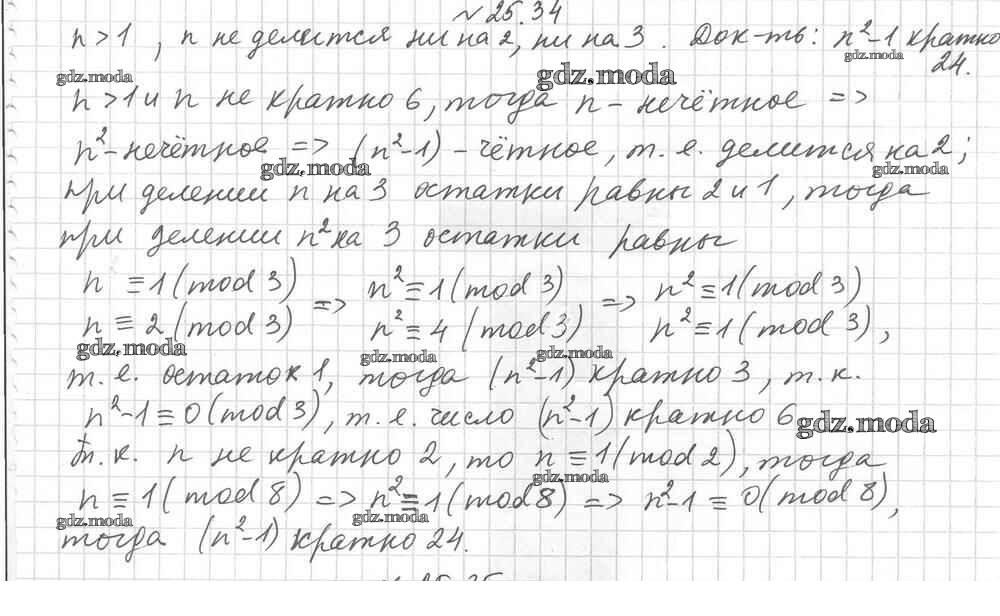 № 25.34
n > 1 , n не делится ни на 2, ни на 3 . Док-ть: n²-1 кратно
24.
gdz.moda gdz.moda gdz.moda
n > 1 и n не кратно 6, тогда n - нечётное =>
n² - нечётное => (n²-1) - чётное, т. е. делится на 2 ;
gdz.moda gdz.moda
при делении n на 3 остатки равны 2 и 1 , тогда
при делении n² на 3 остатки равны
n ≡ 1 (mod 3) => n² ≡ 1 (mod 3) => n² ≡ 1 (mod 3)
n ≡ 2 (mod 3) n² ≡ 4 (mod 3) n² ≡ 1 (mod 3) ,
gdz.moda gdz.moda gdz.moda
т. е. остаток 1, тогда (n²-1) кратно 3 , т. к.
n²-1 ≡ 0 (mod 3) , т. е. число (n²-1) кратно 6 gdz.moda
т. к. n не кратно 2 , то n ≡ 1 (mod 2) , тогда
gdz.moda
n ≡ 1 (mod 8) => n² ≡ 1 (mod 8) => n²-1 ≡ 0 (mod 8) ,
gdz.moda gdz.moda gdz.moda
тогда (n²-1) кратно 24.